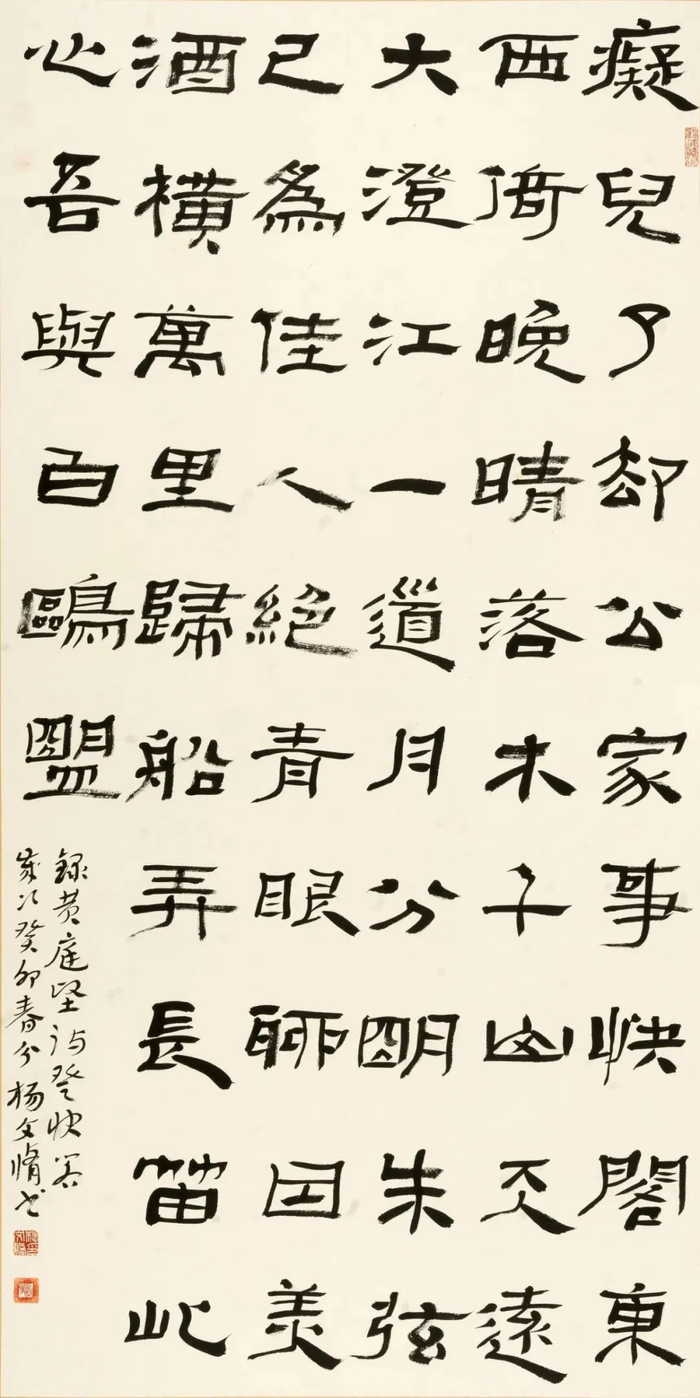 癡兒了却公家事快閣東
西倚晚晴落木千山天遠
大澄江一道月分明朱弦
已為佳人絕青眼聊因美
酒橫萬里歸船弄長笛此
心吾與白鷗盟
錄黃庭堅詩登快閣
歲次癸卯春分楊文脩書